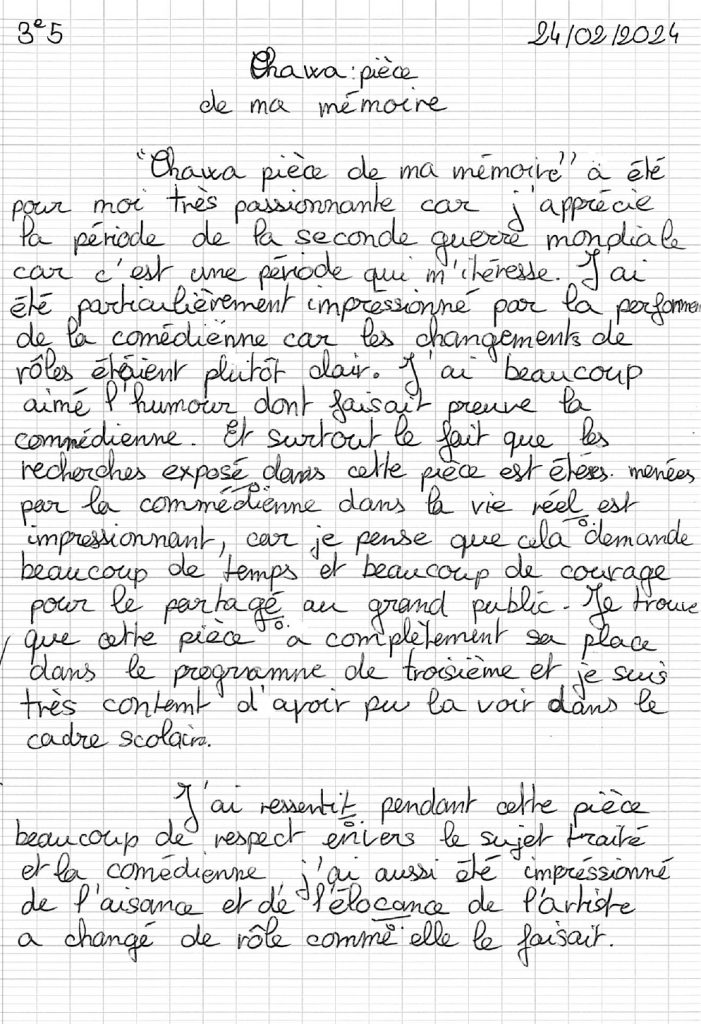 3e5 24/02/2024
Chawa : pièce
de ma mémoire
"Chawa pièce de ma mémoire" a été
pour moi très passionnante car j'apprécie
la période de la seconde guerre mondiale
car c'est une période qui m'itéresse. J'ai
été particulièrement impressionné par la performen
de la comédienne car les changements de
rôles étaient plutôt clair. J'ai beaucoup
aimé l'humour dont faisait preuve la
commédienne. Et surtout le fait que les
recherches exposé dans cette pièce est étées menées
par la commédienne dans la vie réel est
impressionnant, car je pense que cela demande
beaucoup de temps et beaucoup de courage
pour le partagé au grand public. Je trouve
que cette pièce a complètement sa place
dans le programme de troisième et je suis
très content d'avoir pu la voir dans le
cadre scolaire.
J'ai ressentit pendant cette pièce
beaucoup de respect envers le sujet traité
et la comédienne j'ai aussi été impréssionné
de l'aisance et de l'élocance de l'artiste
a changé de rôle comme elle le faisait.